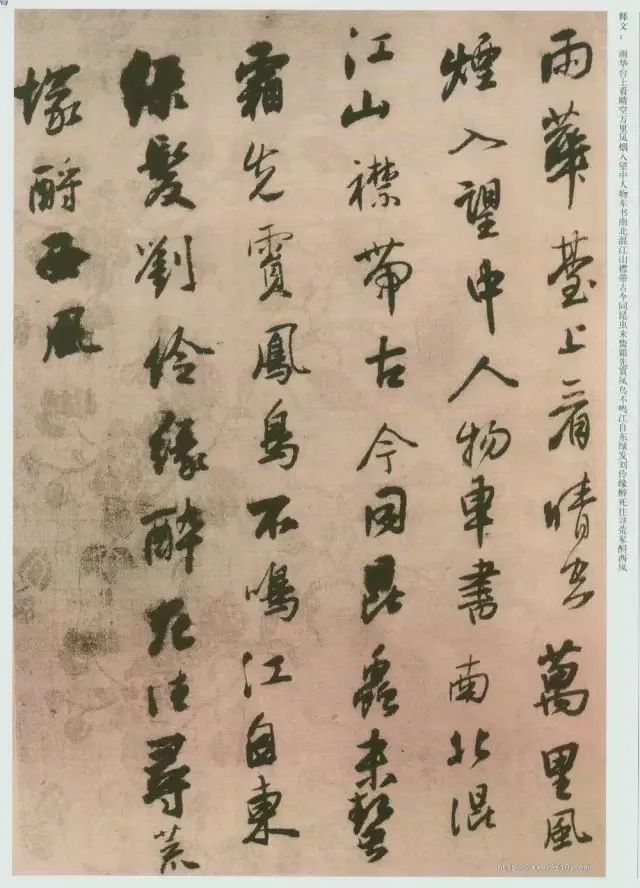 释文： 雨华台上看晴空万里风烟入望中人物车书南北混江山襟带古今同昆虫未蛰霜先霣凤鸟不鸣江自东绿发刘伶缘醉死往寻荒冢酹西风
雨華臺上看晴空萬里風
煙入望中人物車書南北混
江山襟帶古今同昆蟲未蟄
霜先霣鳳鳥不鳴江自東
綠髮劉伶緣醉死往尋荒
塚酹西風
http://www.9610.com